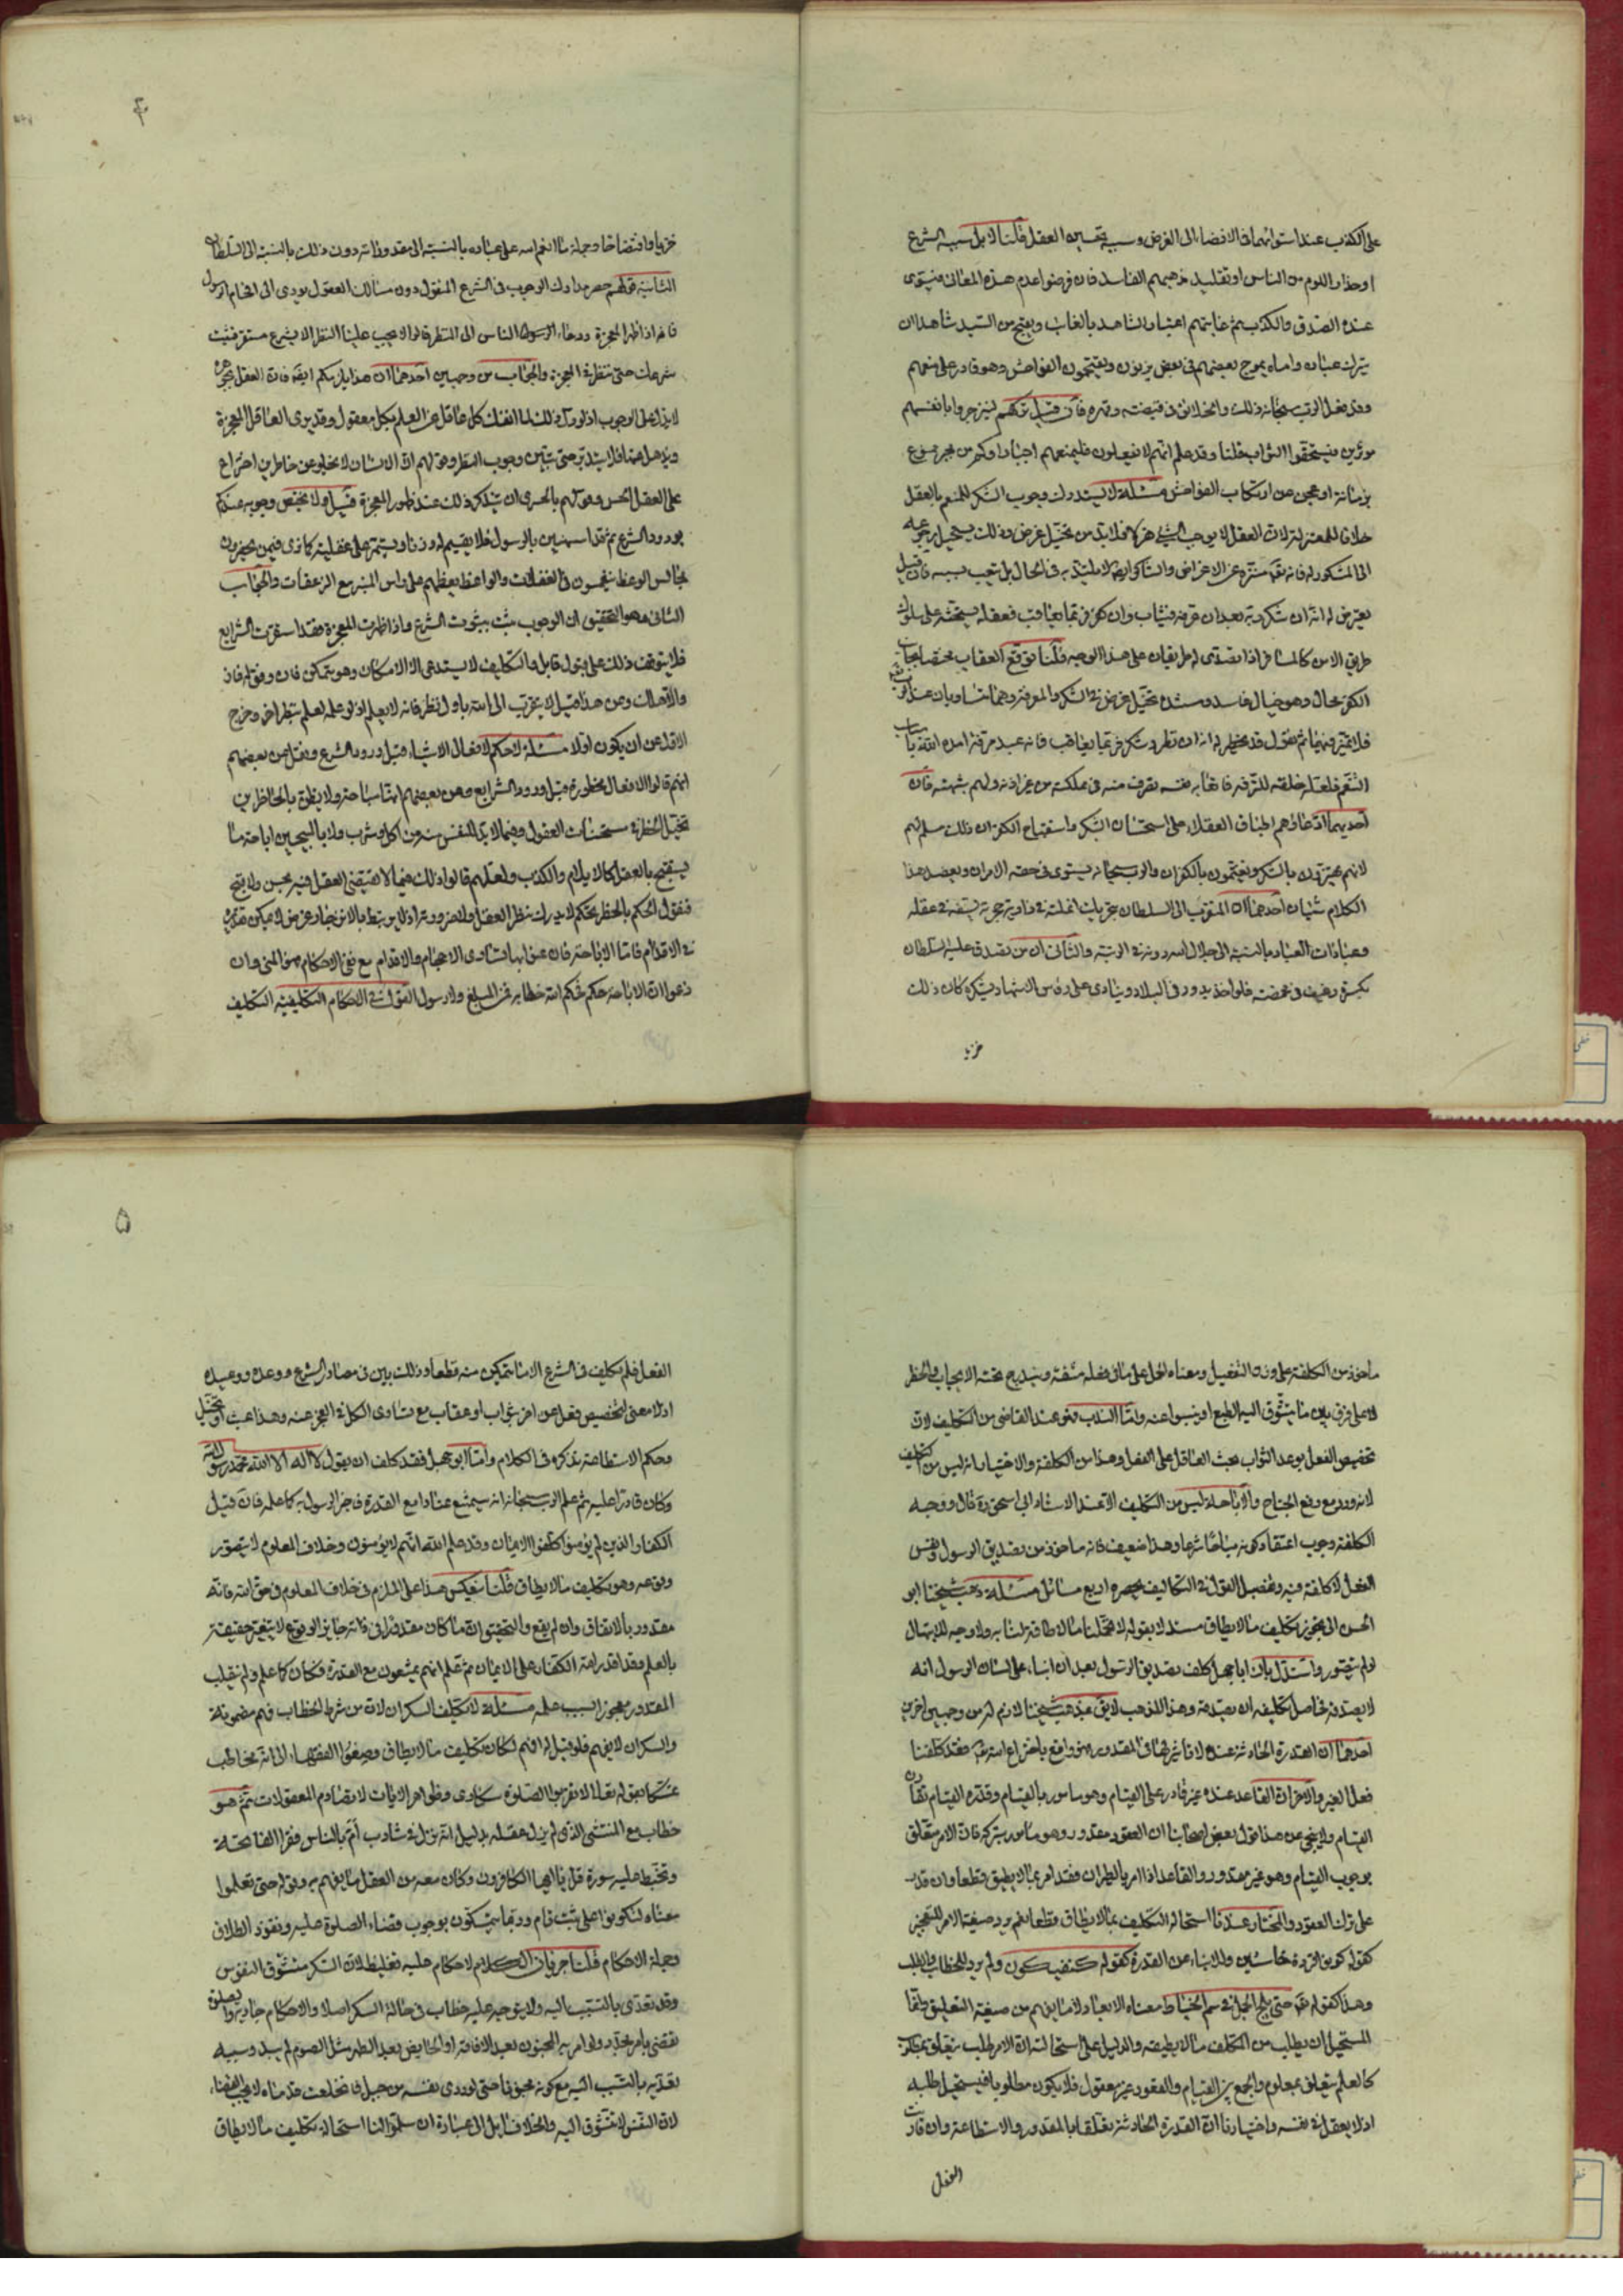 على الكذب عند استوائهما في الافضاء الى الغرض وسببه تحسين العقل قلنا لا بل سببه الشرع
او حذار اللوم من الناس او تقليد مذهبهم الفاسد فان فرضوا عدم هذه المعاني فيستوى
عنده الصدق والكذب ثم غايتهم اعتبار الشاهد بالغائب ويقبح من السيد شاهدا ان
يترك عباده واماءه يموج بعضهم في بعض يزنون ويقتحمون الفواحش وهو قادر على منعهم
وقد فعل الرب سبحانه ذلك والخلائق في قبضته وقهره فان قيل تركهم لينزجروا بانفسهم
فيستحقوا الثواب قلنا وقد علم انهم لا يفعلون فليمنعهم اجبارا وكم من ممنوع
بزمانة او عجز عن ارتكاب الفواحش مسئلة لا يستدرك وجوب الشكر للمنعم بالعقل
خلافا للمعتزلة لان العقل لا يوجب الشيء هزلا فلا بد من تخيل غرض وذلك يستحيل رجوعه
الى المشكور له فانه تعه منزه عن الاغراض والشاكر ايضا لا يلتذ به في الحال بل تعب بسببه فان قيل
يعترض له انه ان شكر ربه بعد ان عرفه فيثاب وان كفر فربما يعاقب فعقله يستحثه على سلوك
طريق الامن كالمسافر اذا تصدى له طريقان على هذا الوجه قلنا توقع العقاب بحتف ايجاب
الكفر محال وهو خيال فاسد ومستنده تخيل غرض في الشكر والمعرفة وهما متساويان عند الرب تعه
فلا تميز فيهما ثم نقول قد يخطر له انه ان نظر وشكر فربما يعاقب فانه عبد مرفه امده الله باسباب
التنعم فلعله خلقه للترفه فاتعابه نفسه تصرف منه في مملكته من غير اذنه ولهم شبهتان
احديهما ادعاؤهم اطباق العقلاء على استحسان الشكر واستقباح الكفران وذلك مسلم لهم
لانهم يهتزون بالشكر ويغتمون بالكفران والرب سبحانه يستوى في حقه الامران ويعضد هذا
الكلام شيئان احدهما ان المتقرب الى السلطان بتحريك انملته في زاوية حجرته يستسفه في عقله
وعبادات العباد بالنسبة الى جلال الله دونه في الرتبة والثاني ان من تصدق عليه السلطان
بكسرة رغيف في مخمصة فلو اخذ يدور في البلاد وينادى على رؤس الاشهاد بشكره كان ذلك
خزيا
خزيا وافتضاحا وجملة ما انعم الله على عباده بالنسبة الى مقدوراته دون ذلك بالنسبة الى السلطان
الثانية قولهم حصر مدارك الوجوب في الشرع المنقول دون مسالك العقول يودى الى افحام الرسول
فانه اذا اظهر المعجزة ودعاء الرسول الناس الى النظر قالوا لا يجب علينا النظر الا بشرع مستقر فثبت
شرعك حتى ننظر في المعجزة والجواب من وجهين احدهما ان هذا يلزمكم ايضا فان العقل بمجرده
لا يدل على الوجوب اذ لو دل ذلك لما انفك كل عاقل عن العلم بكل معقول وقد يرى العاقل المعجزة
ويذهل عنها فلا يتدبر حتى يتبين وجوب النظر وقولهم ان الانسان لا يخلو عن خاطرين اختراع
على العقل والحس وقولهم بالحرى ان يتذكر ذلك عند ظهور المعجزة قيل ولا يختص وجوبه عندكم
بورود الشرع ثم قد يستهين بالرسول فلا يقيم له وزنا ويستمر على غفلته كما ترى فيمن يحضرون
مجالس الوعظ ينغمسون في الغفلات والواعظ يعظهم على راس المنبر مع الزعقات والجواب
الثاني هو التحقيق ان الوجوب يثبت بثبوت الشرع واذا ظهرت المعجزة فقد استقرت الشرايع
فلا يتوقف ذلك على قبول قابل والتكليف لا يستدعى الا الامكان وهو متمكن فان وفق له فاز
والا هلك وعن هذا قيل لا يتقرب الى الله باول نظر فانه لا يعلم اذ لو علمه لعلم بنظر اخر وخرج
الاول عن ان يكون اولا مسئلة لا حكم لافعال الاشياء قبل ورود الشرع ونقل عن بعضهم
انهم قالوا الافعال محظورة قبل ورود الشرايع وعن بعضهم انها مباحة ولا يظن بالحاظرين
تخيل الحظر في مستحسنات العقول وفيما لا بد للنفس منه من اكل وشرب ولا بالمبيحين اباحة ما
يستقبح بالعقل كالايلام والكذب ولعلهم قالوا ذلك فيما لا يقتضي العقل فيه بحسن ولا بقبح
فنقول الحكم بالحظر تحكم لا يدرك نظر العقل ولا ضرورته اذ لا يرتبط بالانزجار غرض لا يمكن تقديره
في الاقدام فاما الاباحة فان عنوا بها تساوى الاحجام والاقدام مع نفي الاحكام فهو المنى وان
زعموا ان الاباحة حكم فحكم الله خطابه فمن المبلغ ولا رسول القول في الاحكام التكليفية التكليف
ماخوذ من الكلفة على وزن التفعيل ومعناه الحمل على ما في فعله مشقة ويندرج تحته الايجاب والحظر
لا على فرق بين ما يتشوق اليه الطبع او ينبوا عنه واما الندب فهو عند القاضي من التكليف لان
تخصيص الفعل بوعد الثواب يحث العاقل على الفعل وهذا من الكلفة والاختيار انه ليس من التكليف
لانه ورد مع رفع الجناح والاباحة ليس من التكليف الا عند الاستاد ابي اسحق ره قال ووجه
الكلفة وجوب اعتقاد كونه مباحا شرعا وهذا ضعيف فانه ماخوذ من تصديق الرسول ونفس
الفعل لا كلفة فيه وتفصيل القول في التكاليف يحصره اربع مسائل مسئلة ذهب شيخنا ابو
الحسن الى تجويز تكليف ما لا يطاق مستدلا بقوله لا تحملنا ما لا طاقة لنا به ولا وجه للابتهال
لو لم يتصور واستدل بان ابا جهل كلف تصديق الرسول بعد ان انباء على لسان الرسول انه
لا يصدقه فحاصل تكليفه ان يصدقه وهذا المذهب لايق بمذهب شيخنا لازم له من وجهين اخرين
احدهما ان القدرة الحادثة عنده لا تاثير لها في المقدور فهو واقع باختراع الله تعه فقد كلفنا
فعل الغير والاخر ان القاعد عنده غير قادر على القيام وهو مامور بالقيام وقدرة القيام تقارن
القيام ولا ينجى عن هذا قول بعض اصحابنا ان القعود مقدور وهو مامور بتركه فان الامر متعلق
بوجوب القيام وهو غير مقدور والقاعد اذا امر بالطيران فقد امر بما لا يطيق قطعا وان قدر
على ترك القعود والمختار عندنا استحالة التكليف بما لا يطاق قطعا نعم يرد صيغة الامر للتعجيز
كقوله كونوا قردة خاسئين والانباء عن القدرة كقوله كن فيكون ولم يرد للخطاب والطلب
وهذا كقوله تعه حتى يلج الجمل في سم الخياط معناه الابعاد لا ما يفهم من صيغة التعليق وانما
المستحيل ان يطلب من المكلف ما لا يطيقه والدليل على استحالته ان الامر طلب يتعلق بمطلوب
كالعلم يتعلق بمعلوم والجمع بين القيام والقعود غير معقول فلا يكون مطلوبا فيستحيل طلبه
اذ لا يعقل في نفسه واختيارنا ان القدرة الحادثة تعلقها بالمقدور والاستطاعة وان قارنت
الفعل
الفعل فلم تكليف في الشرع الا ما يتمكن منه قطعا وذلك بين في مصادر الشرع ووعده ووعيده
اذ لا معنى لتخصيص فعل عن اخر بثواب او عقاب مع تساوى الكل في العجز عنه وهذا عبث
وحكم الاستطاعة نذكره في الكلام واما ابو جهل فقد كلف ان يقول لا اله الا الله محمد رسول الله
وكان قادرا عليه ثم علم الرب سبحانه انه سيمتنع عنادا مع القدرة فاخبر الرسول به كما علمه فان قيل
الكفار الذين لم يؤمنوا كلفوا الايمان وقد علم الله انهم لا يؤمنون وخلاف المعلوم لا يتصور
وقوعه وهو تكليف ما لا يطاق قلنا ينعكس هذا على الملزم في خلاف المعلوم في حق الله فانه
مقدور بالاتفاق وان لم يقع والتحقيق ان ما كان مقدورا في ذاته جايز الوقوع لا يتغير حقيقته
بالعلم فقد اقدر الله الكفار على الايمان ثم علم انهم يمتنعون مع القدرة فكان كما علم ولم ينقلب
المقدور معجوزا بسبب علمه مسئلة لا تكليف السكران لان من شرط الخطاب فهم مضمونه
والسكران لا يفهم فلو قيل له افهم لكان تكليف ما لا يطاق وصغوا الفقهاء الى انه مخاطب
متمسكا بقوله تعالى لا تقربوا الصلوة وانتم سكارى وظواهر الايات لا تصادم المعقولات ثم هو
خطاب مع المنتشى الذي لم يزل عقله بدليل انه نزل في شارب ام بالناس فقرا الفاتحة
وتخبط عليه سورة قل يا ايها الكافرون وكان معه من العقل ما يفهم به وقوله حتى تعلموا
معناه لتكونوا على تثبت تام وربما يتمسكون بوجوب قضاء الصلوة عليه ونفوذ الطلاق
وجملة الاحكام قلنا جريان الاحكام عليه تغليظ لان السكر متشوق النفوس
وقد تعدى بالتسبب اليه ولا يتوجه عليه خطاب في حالة السكر اصلا والاحكام جارية والصلوة
تقضى بامر مجدد ولو امر به المجنون بعد الافاقة او الحايض بعد الطهر مثل الصوم لم يبعد وسببه
تعديه بالتسبب اليه مع كونه مجنونا حتى لو ردى نفسه من جبل فانخلعت قدماه لا يجب القضاء
لان النفس لا تتشوق اليه والخلاف ايل الى عبارة ان سلموا لنا استحالة تكليف ما لا يطاق